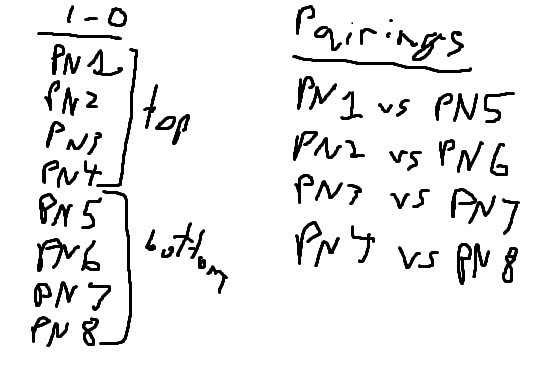 1-0
PN1
PN2
PN3
PN4
top
PN5
PN6
PN7
PN8
bottom
Pairings
PN1 vs PN5
PN2 vs PN6
PN3 vs PN7
PN4 vs PN8